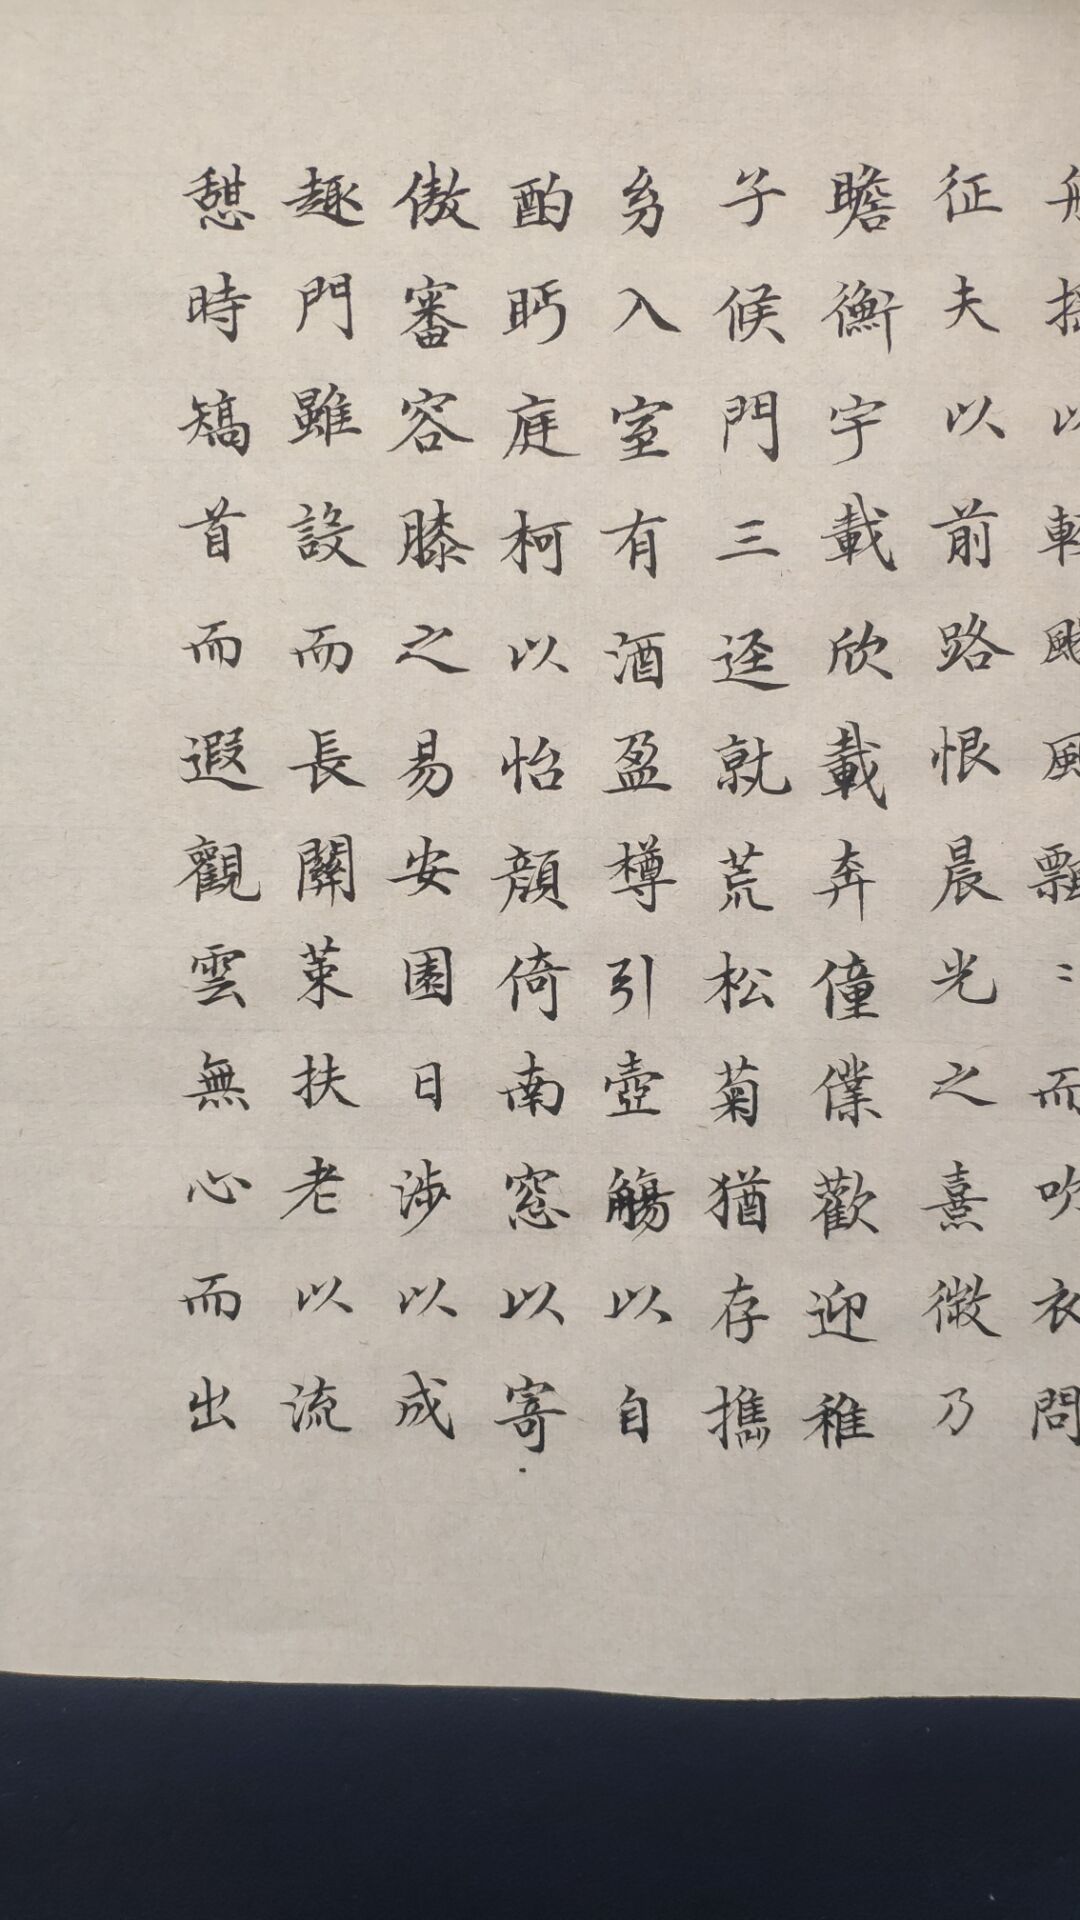 舟摇以軽颺風飄〻而吹衣問
征夫以前路恨晨光之熹微乃
瞻衡宇載欣載奔僮僕歡迎稚
子候門三迳就荒松菊猶存攜
㓜入室有酒盈樽引壺觴以自
酌眄庭柯以怡顔倚南窓以寄
傲審容膝之易安園日涉以成
趣門雖設而長關策扶老以流
憇時矯首而遐觀雲無心而出